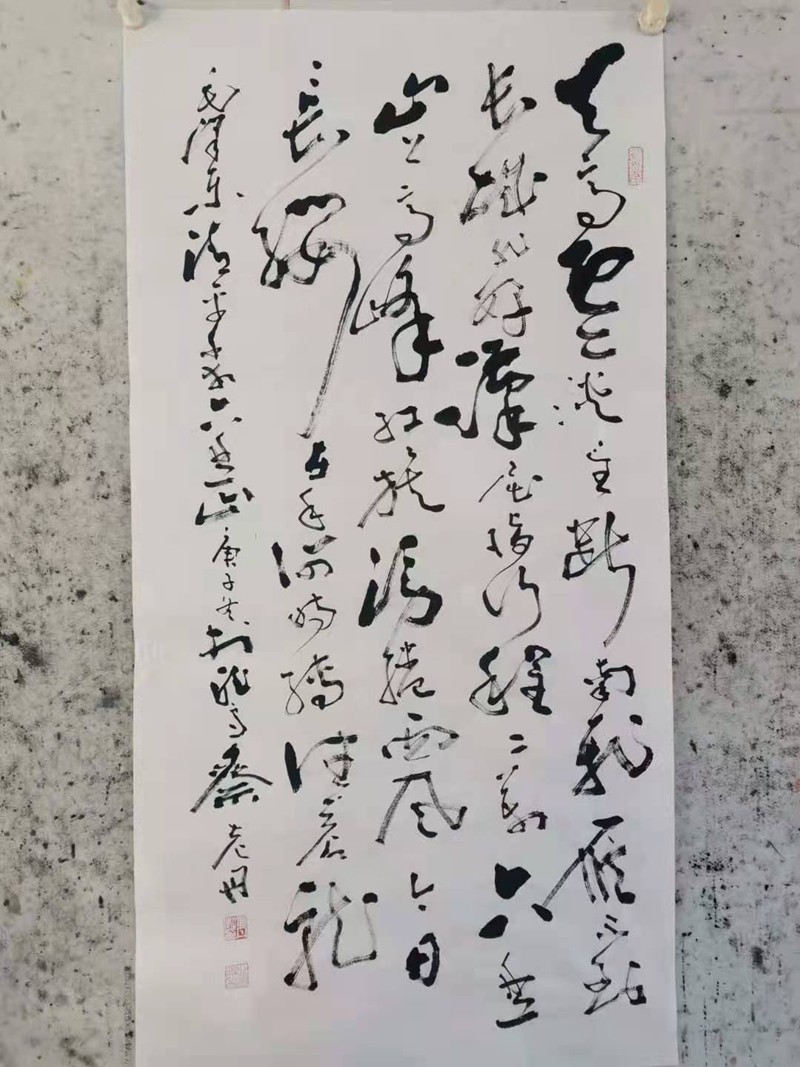 天高云淡望断南飞雁不到
长城非好漢屈指行程二万六盘
山上高峰红旗漫卷西风今日
長缨在手何时缚住苍龙
毛泽东清平乐六盘山庚子斋老丹